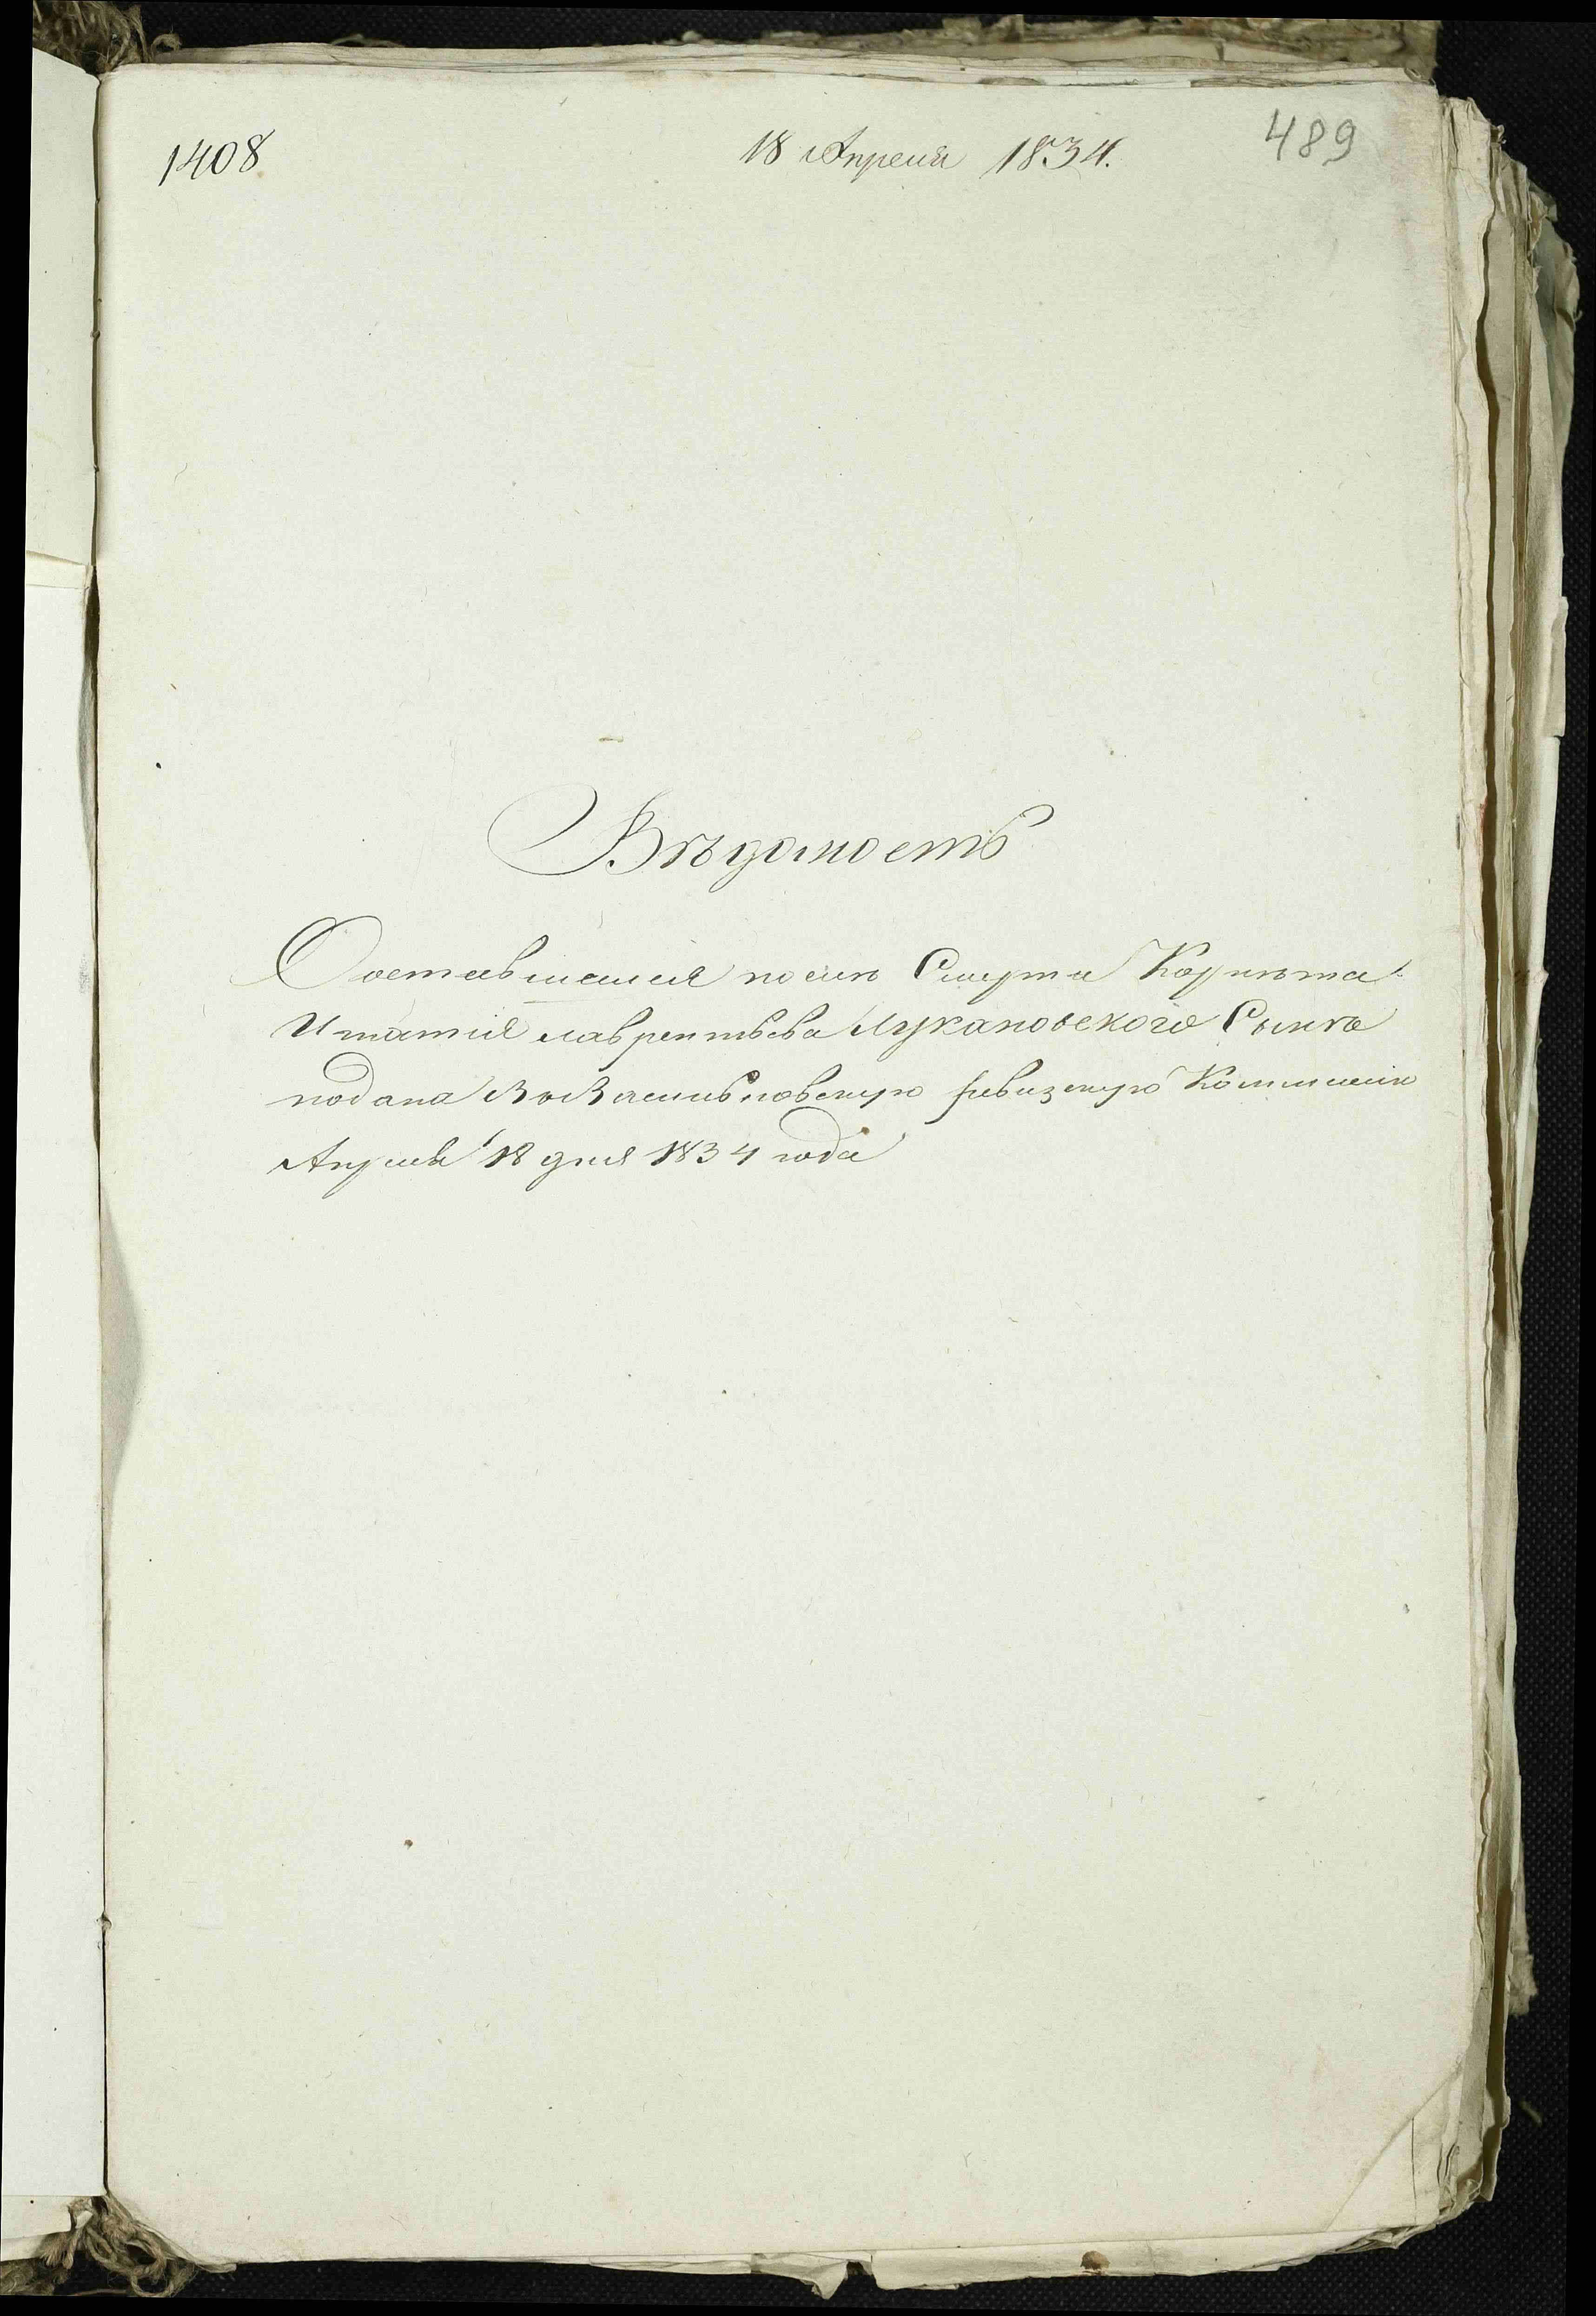 1408
18 Апреля 1834.
489
Вѣдомость
О оставшемся после Смерти Корнета
Игнатия лаврентьева Лукановского Сынѣ
подана Во Васильковскую ревизскую Коммисию
Апреля 18 дня 1834 года